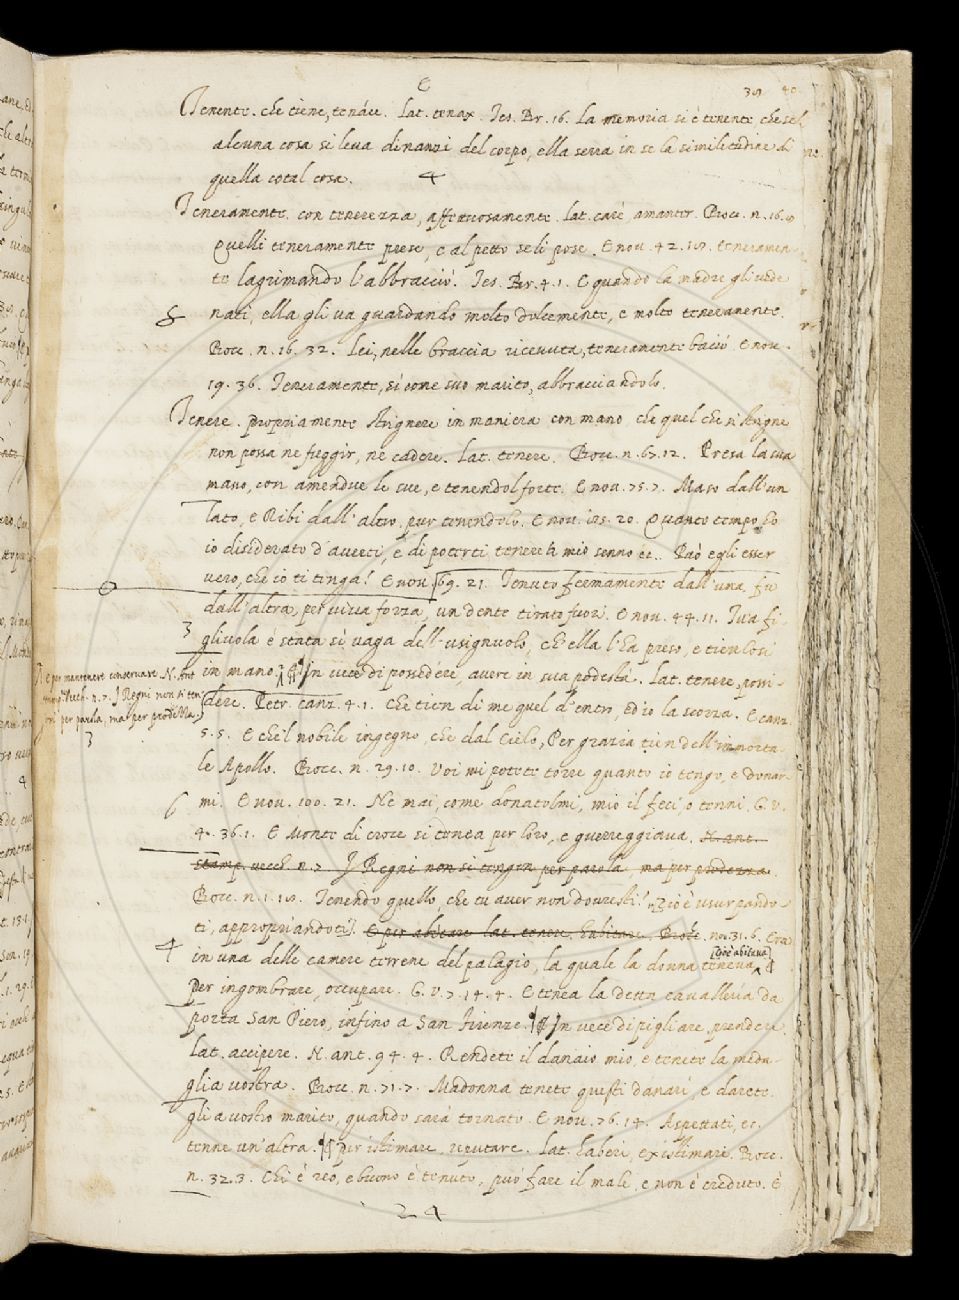 39 40
Tenente. che tiene, tenáce. Lat. tenax. Tes. Br. 16. La memoria si è tenente che se l'
alcuna cosa si leva dinanzi del corpo, ella serra in se la similitudine di
quella cotal cosa. 4
Teneramente. con tenerezza, affettuosamente. Lat. carè, amanter. Bocc. n. 16. 9
Quelli teneramente prese, e al petto se li pose. E nov. 42. 19. teneramen-
te lagrimando l'abbracciò. Tes. Br. 4. 1. E quando la madre gli vede
nati, ella gli va guardando molto dolcemente, e molto teneramente.
Bocc. n. 16. 32. Lei, nelle braccia ricevuta, teneramente baciò. E nov.
19. 36. Teneramente, sì come suo marito, abbracciandolo.
Tenere. propriamente strignere in maniera con mano, che quel che si strigne
non possa ne fuggir, nè cadere. Lat. tenere. Bocc. n. 67. 12. Presa la sua
mano, con amendue le sue, e tenendol forte. E nov. 75. 7. Maso dall'un
lato, e Ribi dall'altro, pur tenendolo. E nov. 105. 20. Quanto tempo ho
io disiderato d'averti, e di poterti tenere à mio senno ec. Può egli esser
vero, che io ti tenga! E nov. 69. 21. Tenuto fermamente dall'una, fu
dall'altra, per viva forza, un dente tirato fuori. E nov. 44. 11. Tua fi-
3
gliuola è stata sì vaga dell'usignuolo, ch'ella l'ha preso, e tienlosi
in mano. ¶ In vece di possedére, avere in sua podestà. Lat. tenere, possi-
E per mantenere conservare. N. Ant.
stamp. vecch. n. 7. I Regni non si ten
gon per parola, ma per prodezza.
3
dere. Petr. canz. 4. 1. Che tien di me quel d'entro, ed io la scorza. E canz.
5. 5. E che'l nobile ingegno, che dal Cielo, Per grazia tien dell'immorta-
le Apollo. Bocc. n. 29. 10. Voi mi potete torre quanto io tengo, e donar-
mi. E nov. 100. 21. Nè mai, come donatolmi, mio il feci, o tenni. G. V.
4. 36. 1. E Monte di croce si tenea per loro, e guerreggiava. N. ant.
stamp. vecch. n. 7 I Regni non si tengon per parola, ma per prodezza.
Bocc. n. 1. 19. Tenendo quello, che tu aver non dovresti! cioè usurpando-
ti, appropriandoti. E per abitare lat. tenere, habitare. Bocc. nov. 31. 6. Era
4
cioè abitava
in una delle camere terrene del palagio, la quale la donna teneva, ¶
per ingombrare, occupare. G. V. 7. 14. 4. E tenea la detta cavalleria da
porta San Piero, infino a San Firenze. ¶ In vece di pigliare, prendere.
Lat. accipere. N. ant. 94. 4. Rendete il danaio mio, e tenete la meda-
glia vostra. Bocc. n. 71. 7. Madonna tenete questi danari, e darete-
gli a vostro marito, quando sarà tornato. E nov. 76. 14. Aspettati, ec.
tenne un'altra. ¶ per istimare, reputare. Lat. haberi, existimari. Bocc.
n. 32. 3. Chi è reo, e buono è tenuto, può fare il male, e non è creduto. E
24